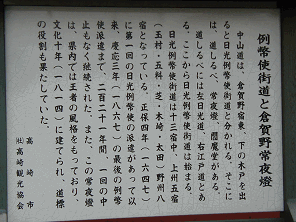 例幣使街道と倉賀野常夜燈
中山道は、倉賀野宿東、下の木戸を出
ると日光例幣使街道と分かれる。そこに
は、道しるべ、常夜燈、閻魔堂がある。
道しるべには左日光道、右江戸道とあ
る。ここから日光例幣使街道は始まる。
日光例幣使街道は十三宿中、上州五宿
(玉村・五料・芝・木崎・太田)野州八
宿となっている。正保四年(一六四七)
に第一回の日光例幣使の派遣があって以
来、慶応三年(一八六七)の最後の例幣
使派遣まで、二百二十一年間、一回の中
止もなく継続された。また、この常夜燈
は、県内では王者の風格をもっており、
文化十年(一八一四)に建てられ、道標
の役割も果たしていた。
高崎市
㈳高崎観光協会